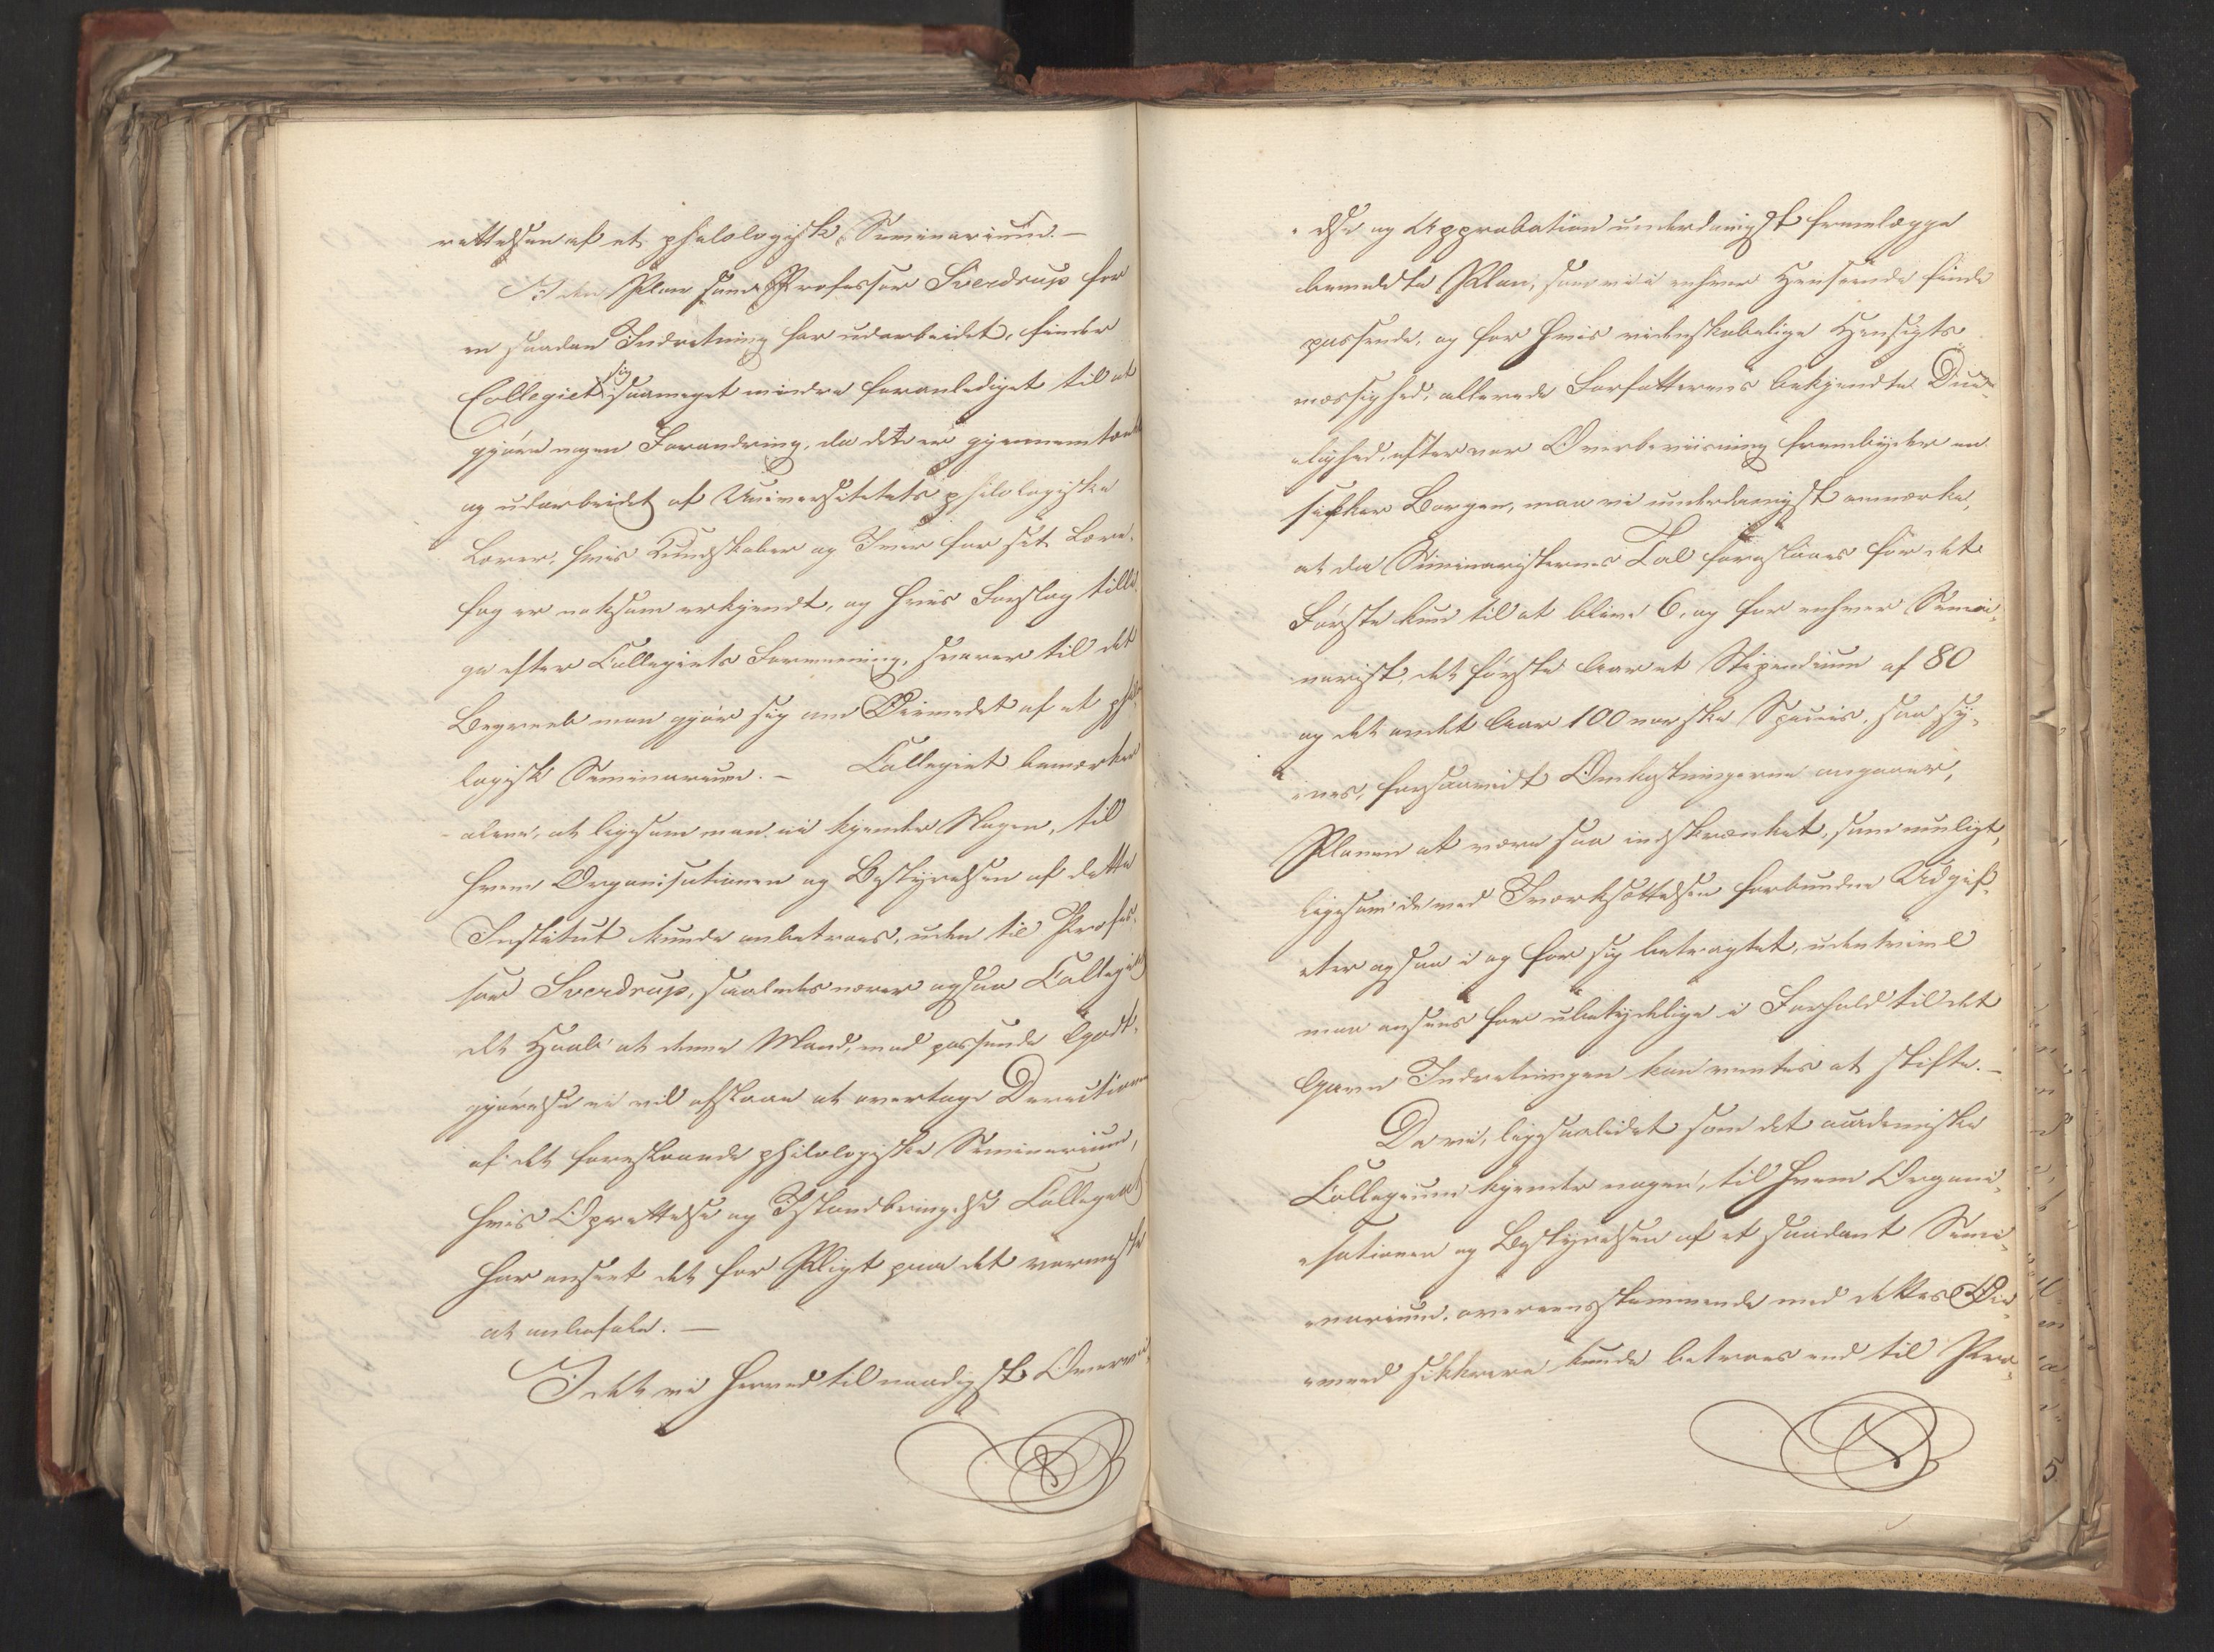 rettelsen af et philologisk Seminarium. —
I den Plan som Professor Sverdrup for
en saadan Indretning har udarbeidet, finder
Collegiet sig saameget mindre foranlediget til at
gjøre nogen Forandring, da det er gjennemtænkt
og udarbeidet af Universitetets philologiske
Lærer, hvis Kundskaber og Iver for sit Lære-
fag er noksom erkjendt, og hvis Forslag tilli-
ge efter Collegiets Formening, svarer til det
Begreeb man gjør sig om Øiemedet af et philo-
logisk Seminarium. — Collegiet bemærker
alene, at ligesom man ei kjender Nogen, til
hvem Organisationen og Bestyrelsen af dette
Institut kunde anbetroes, uden til Profes-
sor Sverdrup, saaledes nærer ogsaa Collegiet
det Haab at denne Mand, mod passende Godt-
gjørelse ei vil afslaae at overtage Directionen
af det forestaaende philologiske Seminarium,
hvis Oprettelse og Istandbringelse Collegiet
har anseet det for Pligt paa det varmeste
at anbefale. —
Idet vi herved til naadigst Overvei-
else og Approbation underdanigst fremlægge
bemeldte Plan, som vi i enhver Henseende finde
passende, og for hvis videnskabelige Hensigts-
mæssighed, allerede Forfatterens bekjendte Due-
lighed, efter vor Overbeviisning frembyder en
sikker Borgen, maa vi underdanigst anmærke,
at da Seminaristernes Tal foreslaaes for det
Første kun til at blive 6, og for enhver Semi-
narist, det første Aar et Stipendium af 80
og det andet Aar 100 norske Species, saa sy-
nes, forsaavidt Omkostningerne angaaer,
Planen at være saa indskrænket, som muligt,
ligesom de med Iværksættelsen forbundne Udgif-
ter ogsaa i og for sig betragtet, uden tvivl
maa ansees for ubetydelige i Forhold til det
Gavn Indretningen kan ventes at stifte. —
Da vi, ligesaalidet som det academiske
Collegium kjender nogen, til hvem Organi-
sationen og Bestyrelsen af et saadant Semi-
narium, overeensstemmende med dettes Øie-
meed sikkrere kunde betroes end til Pro-